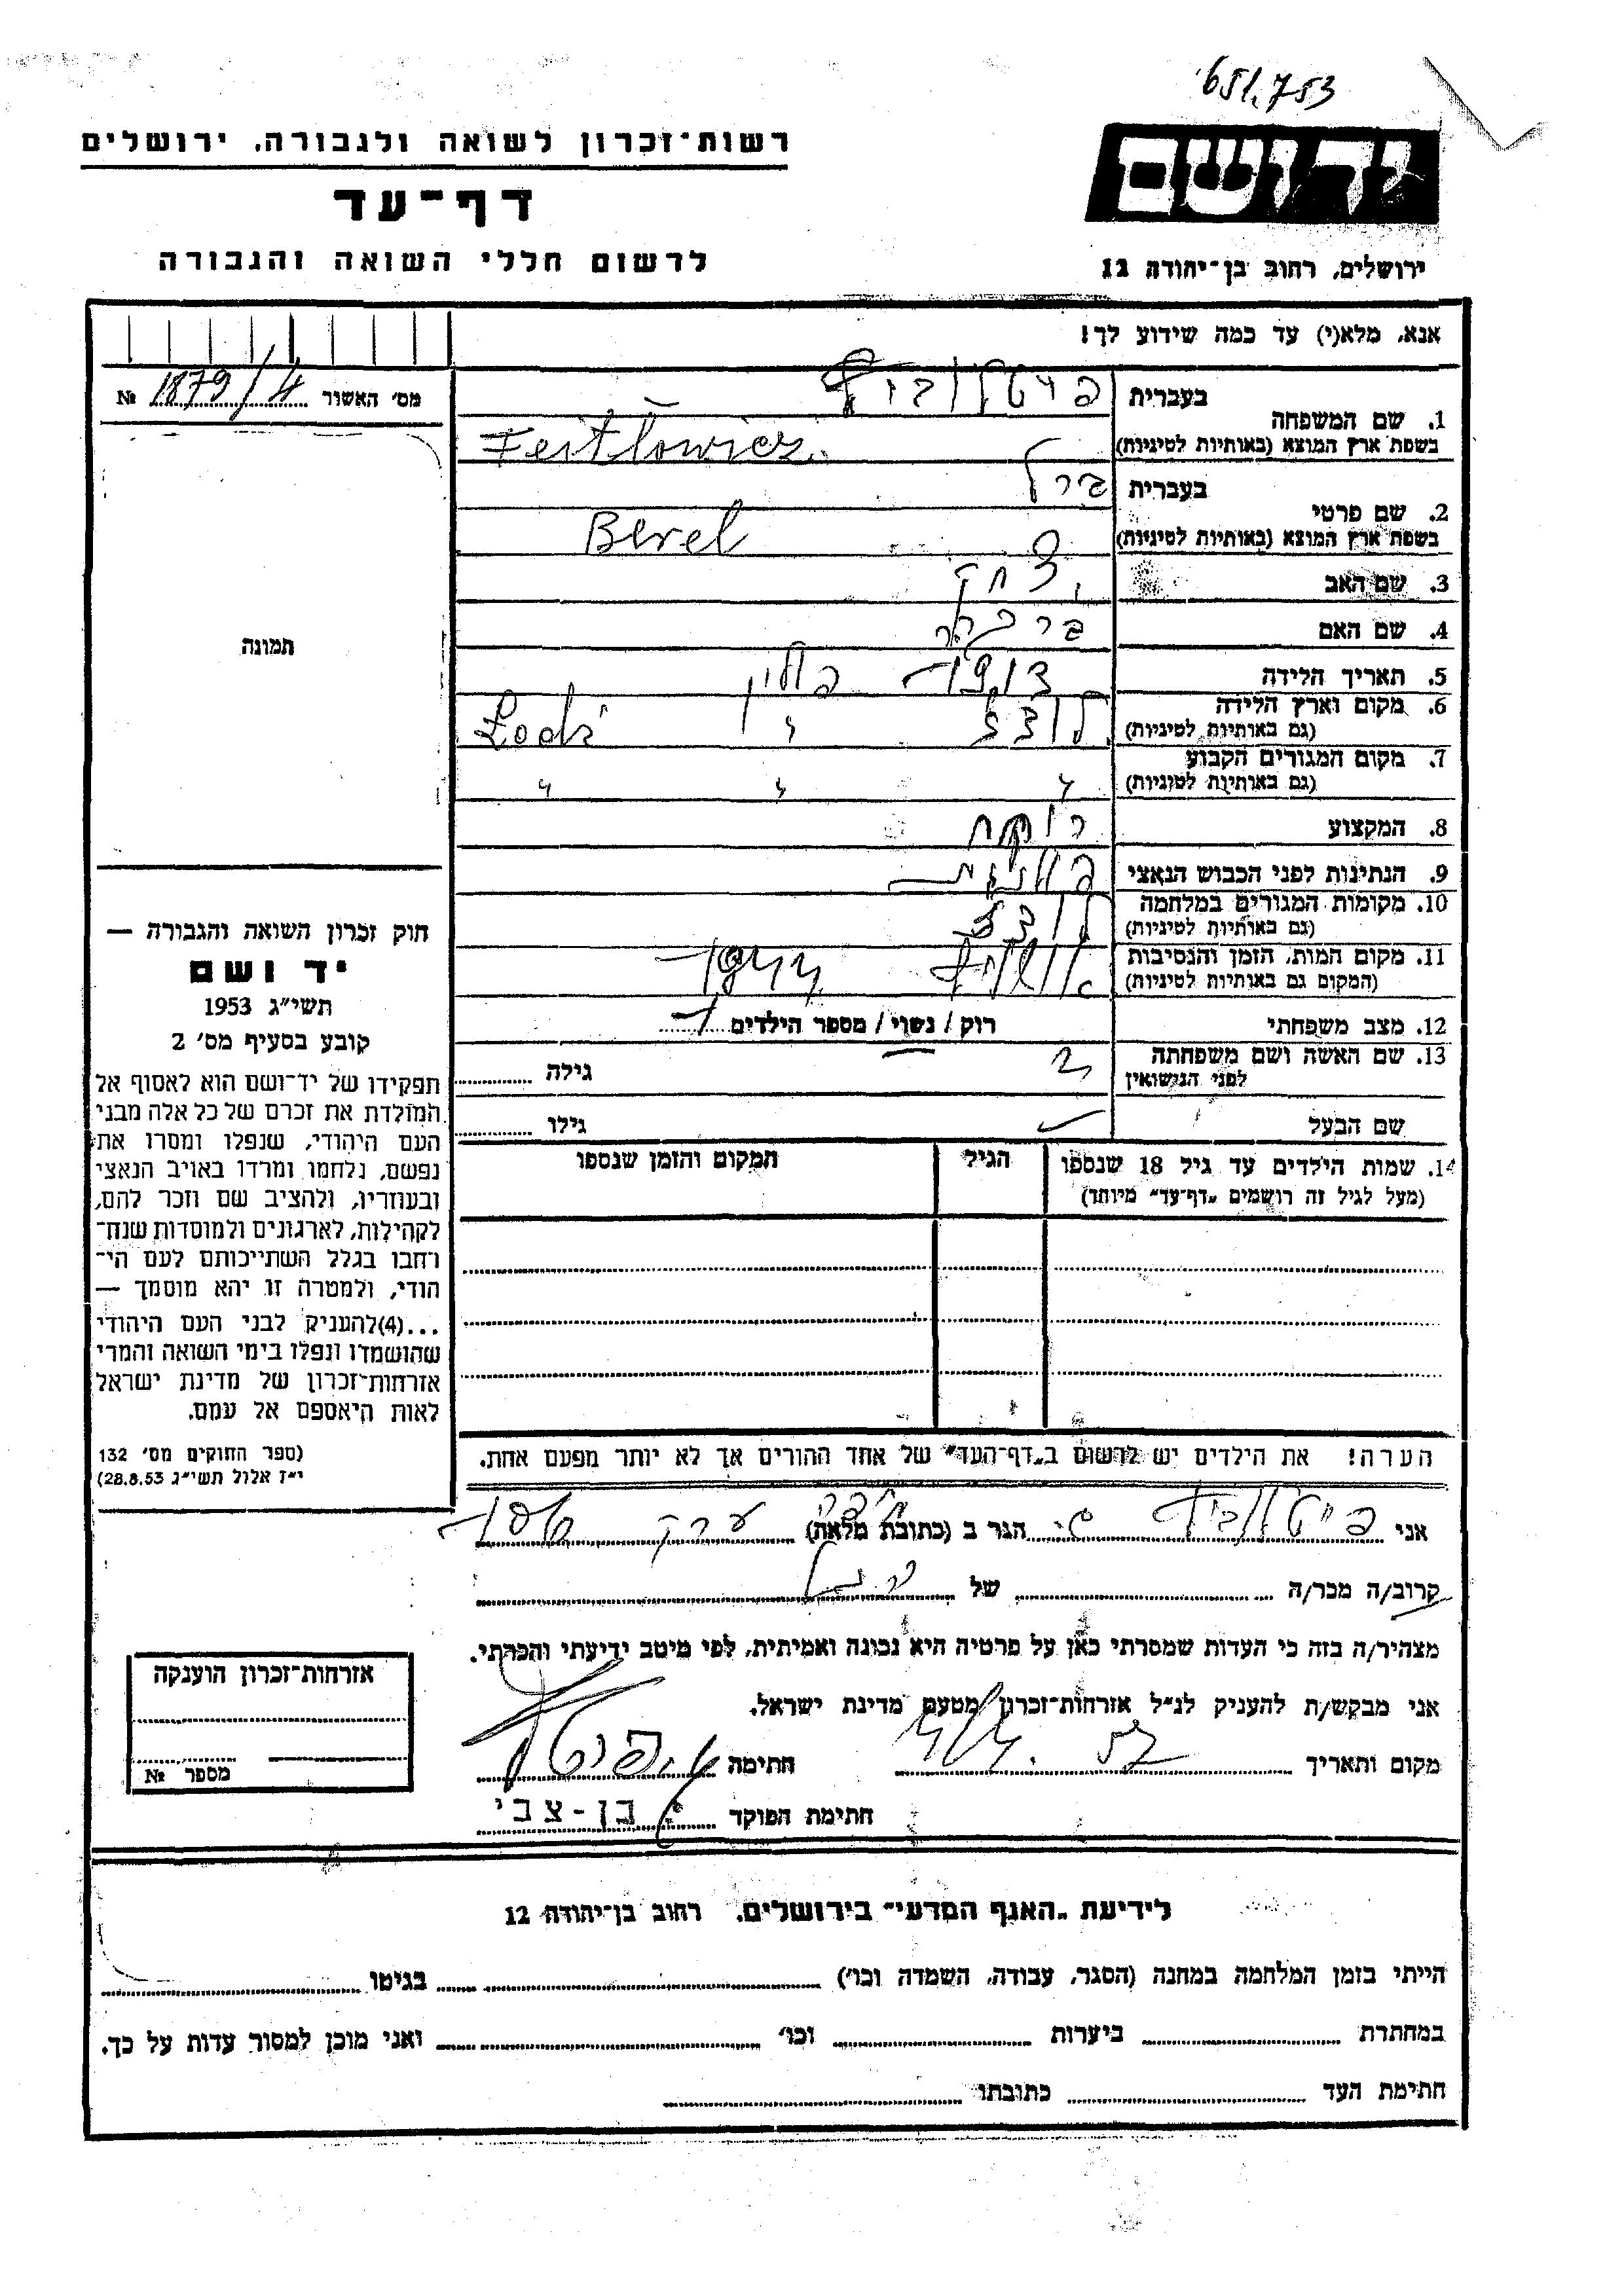 651,753
רשות־זכרון לשואה ולגבורה, ירושלים
יד ושם
דף־עד
לרשום חללי השואה והגבורה
ירושלים, רחוב בן־יהודה 12
אנא, מלא(י) עד כמה שידוע לך!
מס׳ האשור 1879/4 №
1. שם המשפחה בעברית
בשפת ארץ המוצא (באותיות לטיניות) Feitlowicz
2. שם פרטי בעברית ברל
בשפת ארץ המוצא (באותיות לטיניות) Berel
3. שם האב יצחק
4. שם האם
5. תאריך הלידה 1913 פולין
6. מקום וארץ הלידה
(גם באותיות לטיניות) לודז׳ " Łodź
7. מקום המגורים הקבוע
(גם באותיות לטיניות) " " "
8. המקצוע
9. הנתינות לפני הכבוש הנאצי פולנית
10. מקומות המגורים במלחמה
(גם באותיות לטיניות) לודז׳
11. מקום המות, הזמן והנסיבות
(המקום גם באותיות לטיניות) 1944
12. מצב משפחתי רוק / נשוי / מספר הילדים
13. שם האשה ושם משפחתה
לפני הנישואין גילה
שם הבעל גילו
14. שמות הילדים עד גיל 18 שנספו הגיל המקום והזמן שנספו
(מעל לגיל זה רושמים „דף־עד״ מיוחד)
הערה! את הילדים יש לרשום ב„דף־העד״ של אחד ההורים אך לא יותר מפעם אחת.
תמונה
חוק זכרון השואה והגבורה —
יד ושם
תשי״ג 1953
קובע בסעיף מס׳ 2
תפקידו של יד־ושם הוא לאסוף אל
המולדת את זכרם של כל אלה מבני
העם היהודי, שנפלו ומסרו את
נפשם, נלחמו ומרדו באויב הנאצי
ובעוזריו, ולהציב שם וזכר להם,
לקהילות, לארגונים ולמוסדות שנח־
רחבו בגלל השתייכותם לעם הי־
הודי, ולמטרה זו יהא מוסמך —
...(4) להעניק לבני העם היהודי
שהושמדו ונפלו בימי השואה והמרי
אזרחות־זכרון של מדינת ישראל
לאות היאספם אל עמם.
(ספר החוקים מס׳ 132
י״ז אלול תשי״ג 28.8.53)
אני הגר ב (כתובת מלאה)
קרוב/ה מכר/ה של
מצהיר/ה בזה כי העדות שמסרתי כאן על פרטיה היא נכונה ואמיתית, לפי מיטב ידיעתי והכרתי.
אני מבקש/ת להעניק לנ״ל אזרחות־זכרון מטעם מדינת ישראל.
מקום ותאריך חתימה
חתימת הפוקד י. בן-צבי
אזרחות־זכרון הוענקה
מספר №
לידיעת „האגף המדעי״ בירושלים, רחוב בן־יהודה 12
הייתי בזמן המלחמה במחנה (הסגר, עבודה, השמדה וכו׳) בגיטו
במחתרת ביערות וכו׳ ואני מוכן למסור עדות על כך.
חתימת העד כתובתו